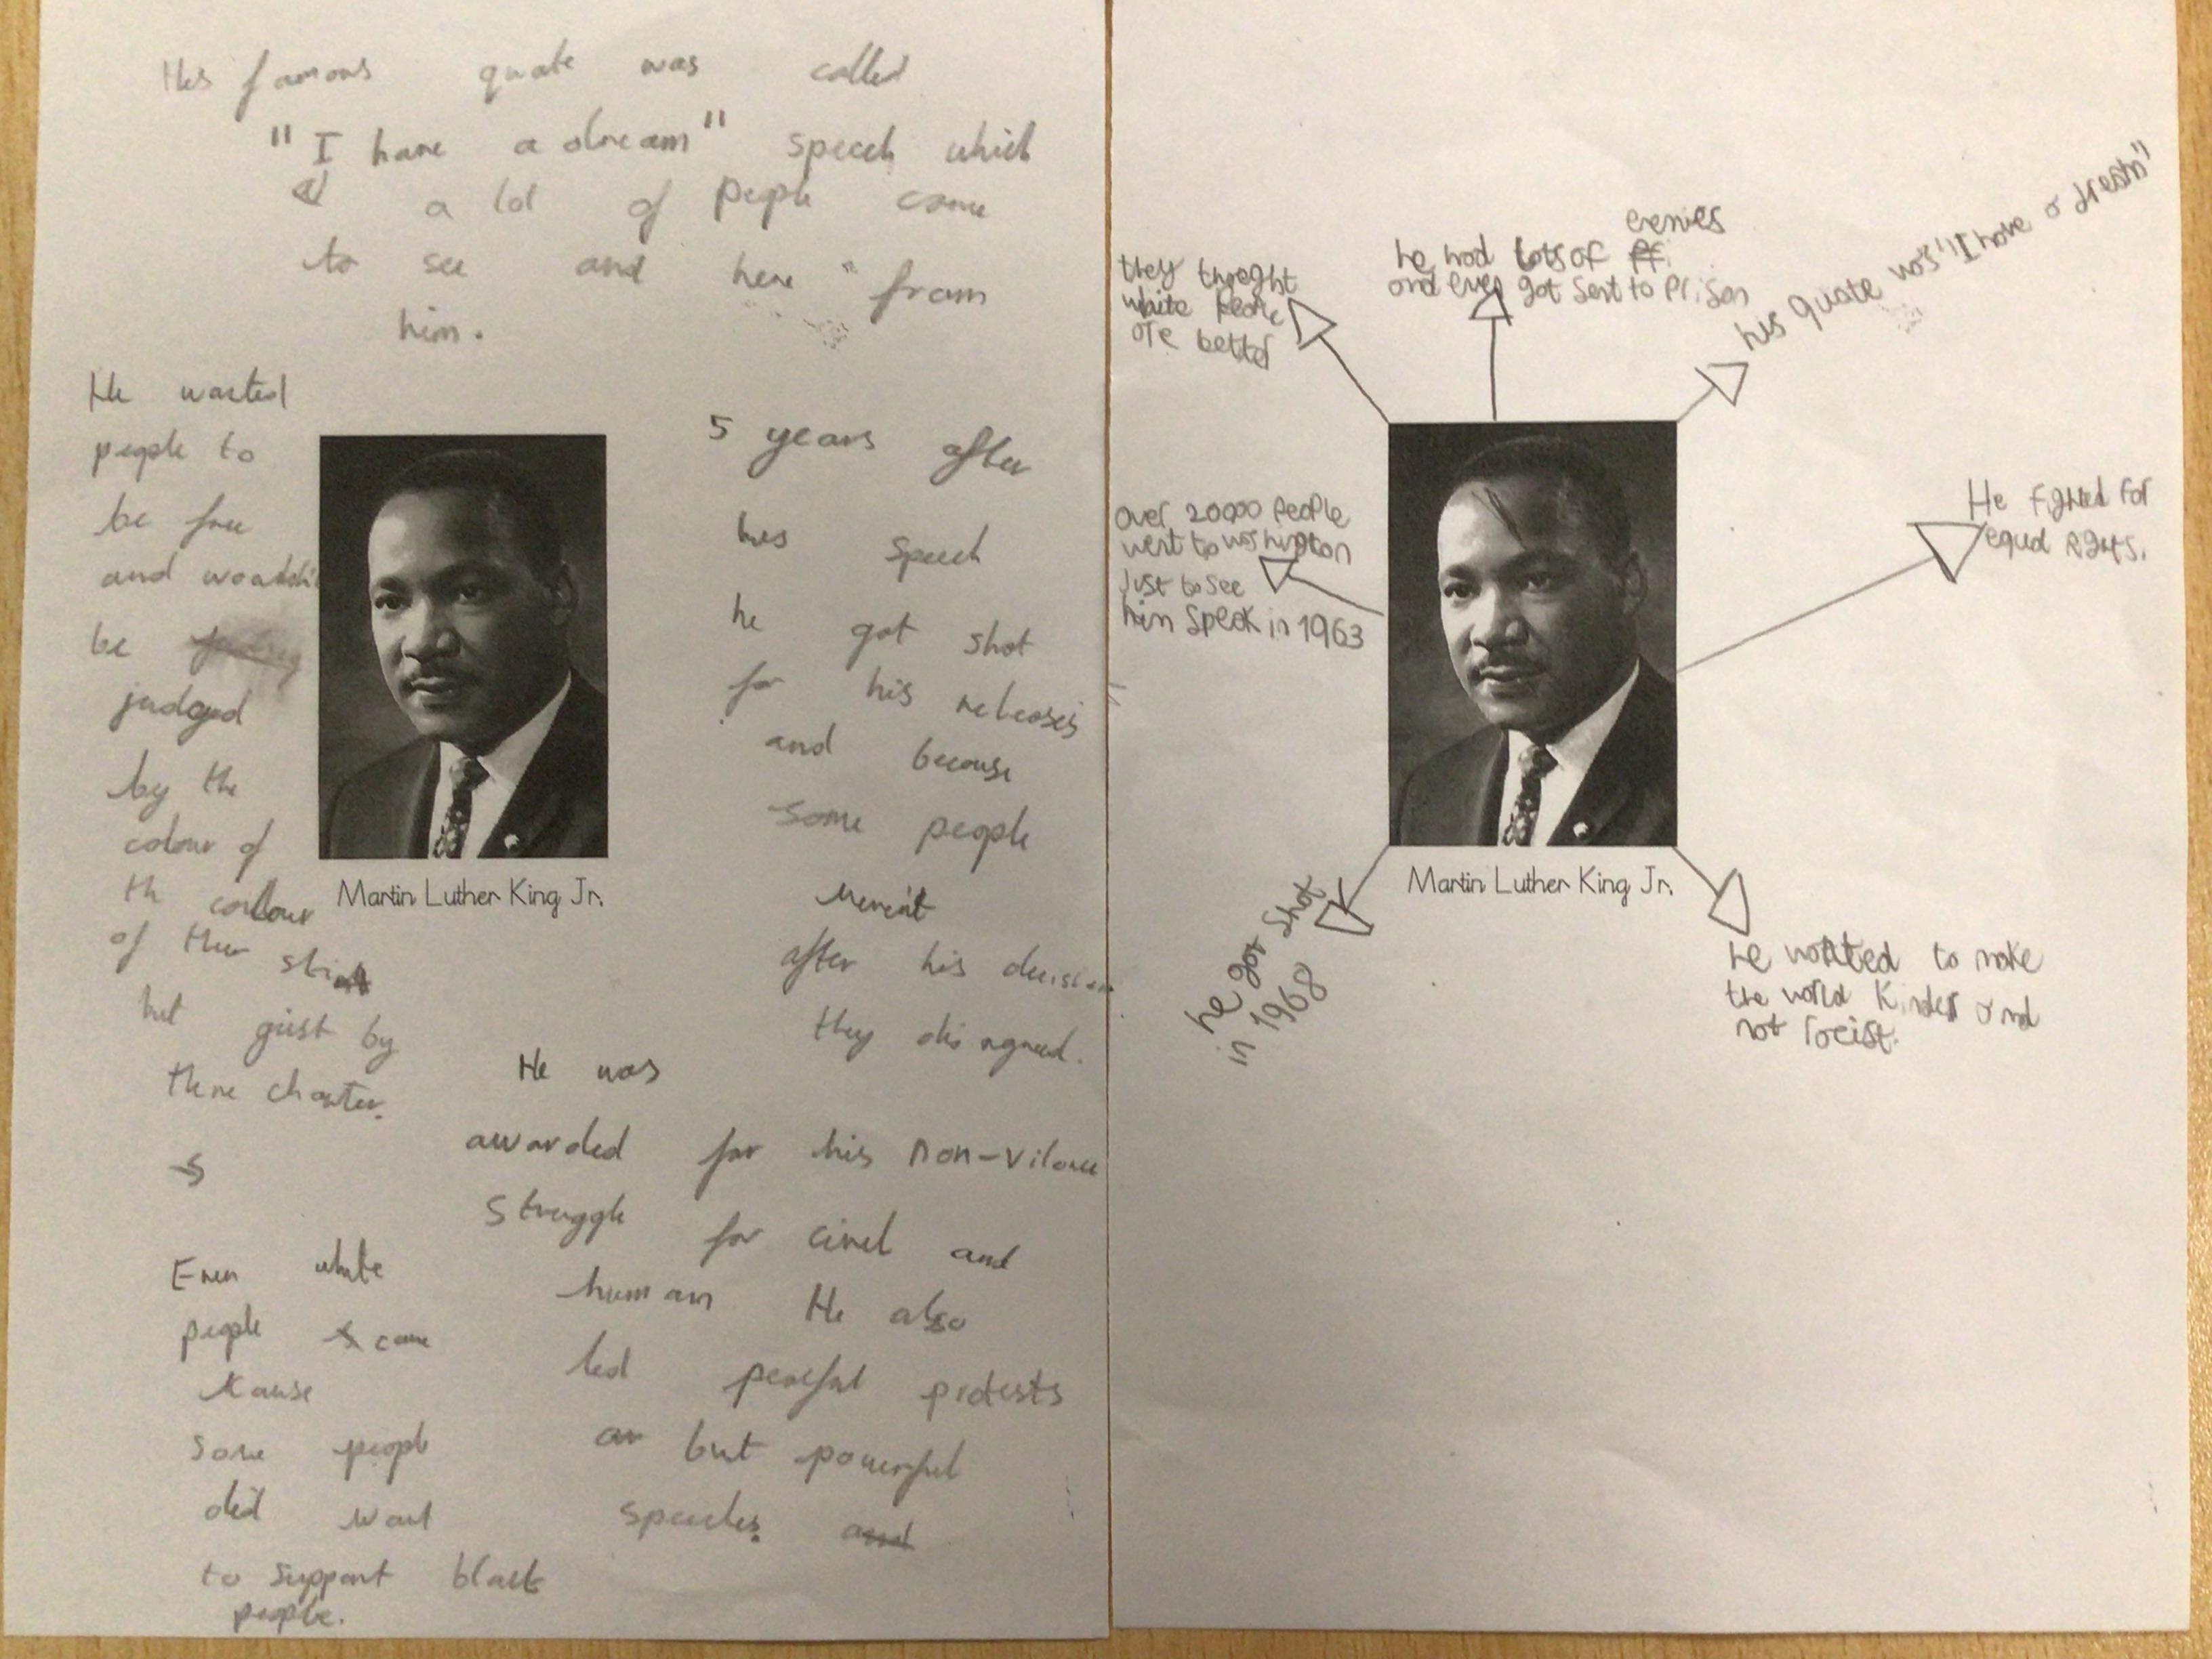 His famous quate was called
"I have a dream" speech which
a lot of people came
to see and here from
him.
He wanted
people to
be free
and
be
judged
by the
colour of
th coulour
of ther skin
but gust by
there charter.
5 years after
his speech
he got shot
for his
and because
some people
weren't
after his decision
they disagreed.
He was
awarded for his non-vilance
struggle for civel and
human He also
led peaceful protests
but powerful
speeches.
Even white
people came
kause
some people
did want
to support black
people.
Martin Luther King Jr.
they thoeght
white people
are better
he had lots of enemies
and even got sent to prison
his quate was "I have a dream"
over 20000 people
went to washington
just to see
him speak in 1963
He fighted for
equal rights.
he got shot
in 1968
Martin Luther King Jr.
he wanted to make
the world kinder and
not racist.